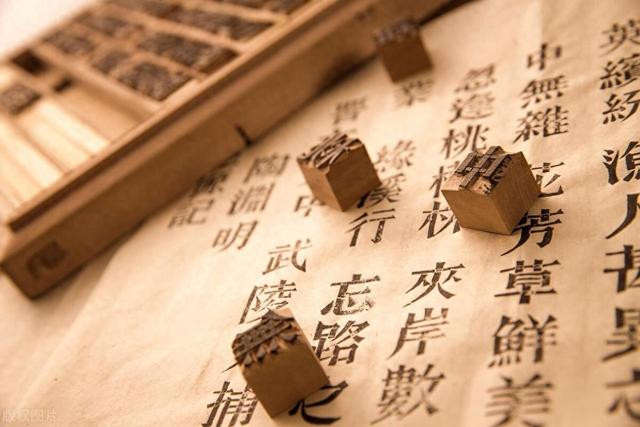 英繽紛漁人甚異
中無雜芳草鮮美
忽逢桃林夾岸數
業緣溪行忘路之
晉中武陵捕
陶淵明
源記
版权图片